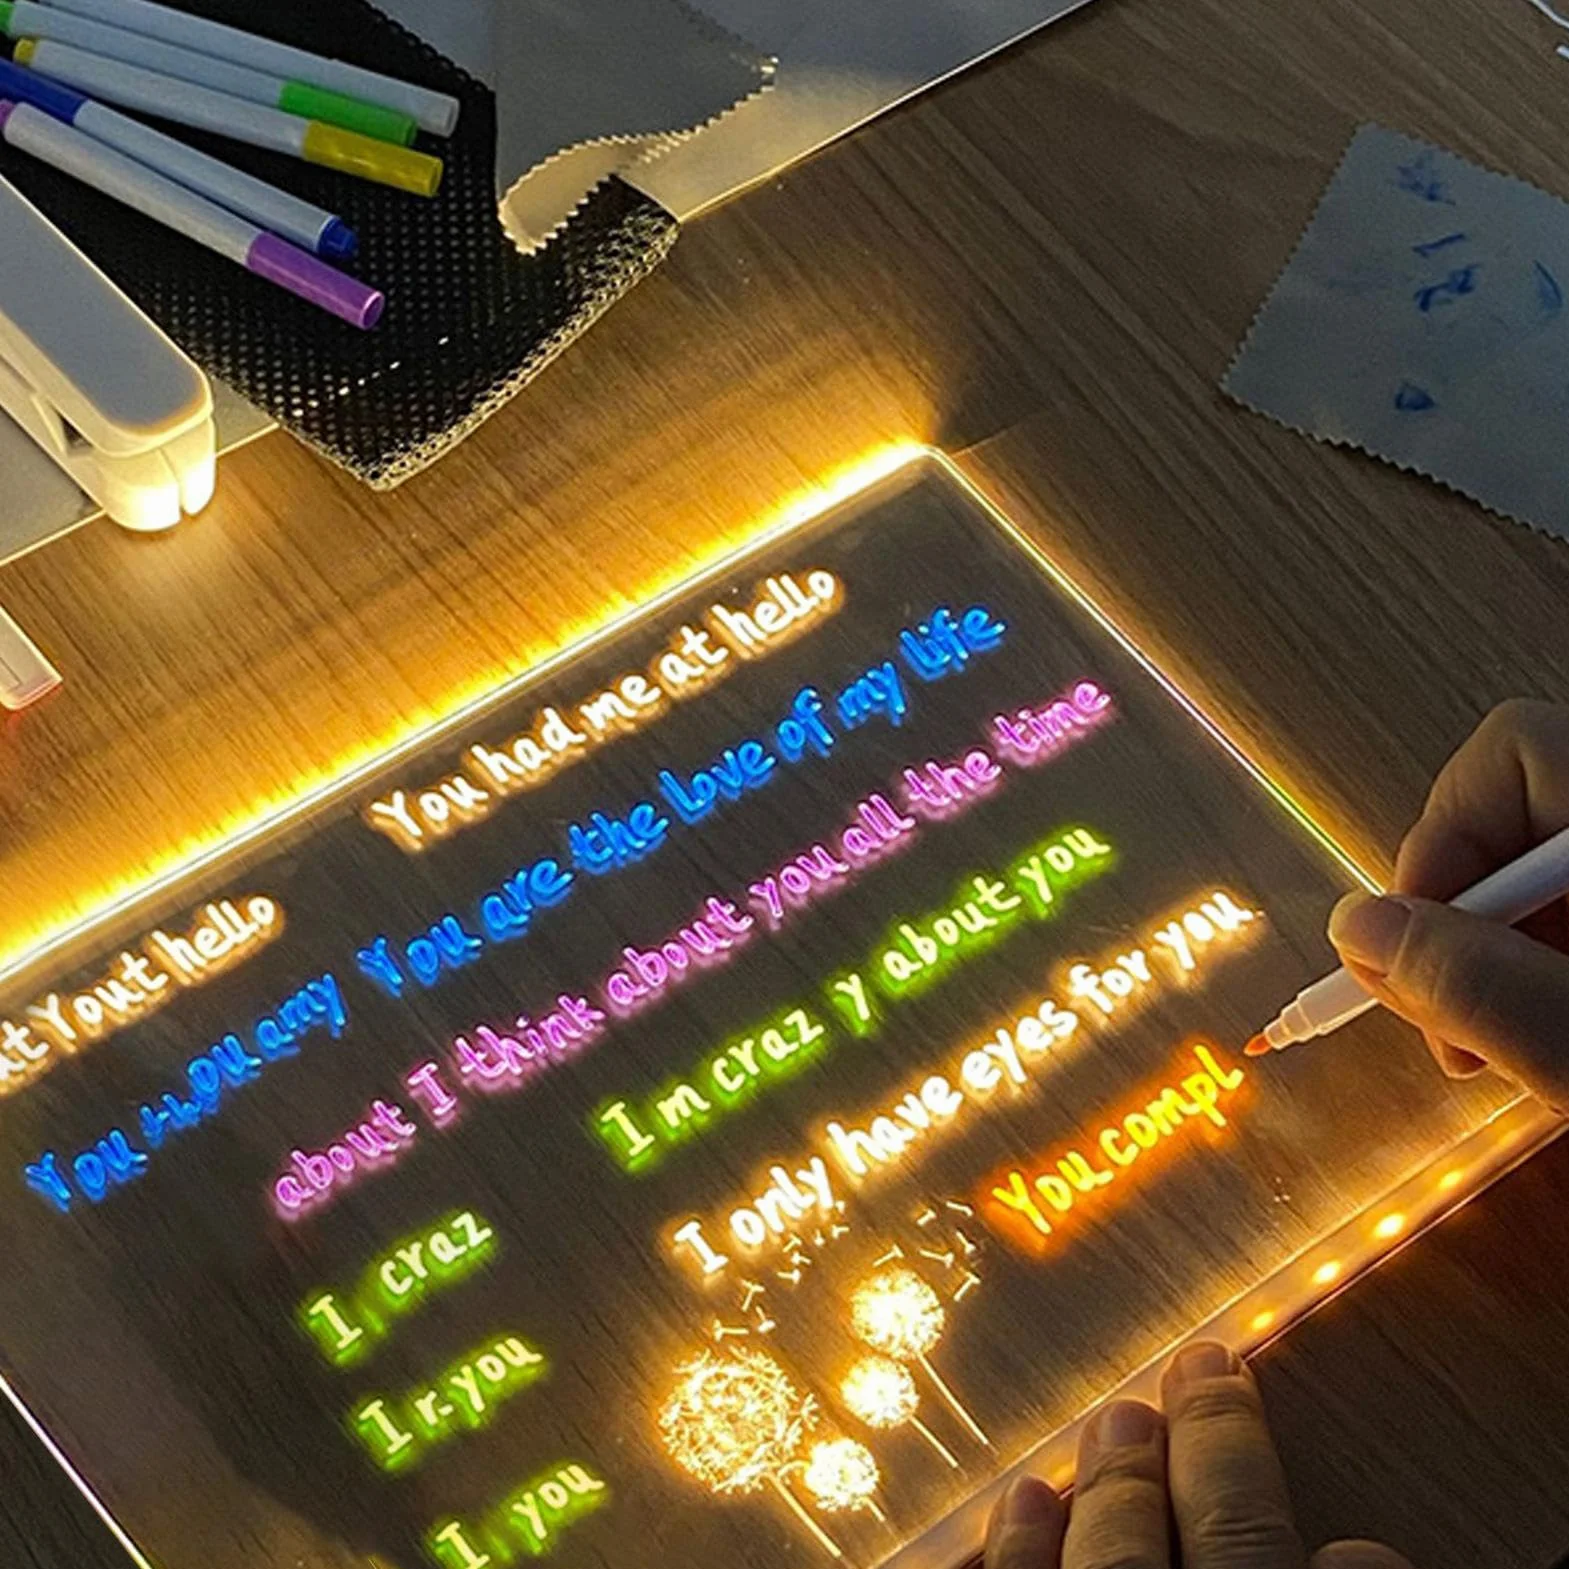 You had me at hello
You are the love of my life
about I think about you all the time
I m craz y about you
I only have eyes for you.
You compl
Yout hello
You amy
I craz
I r. you
I you